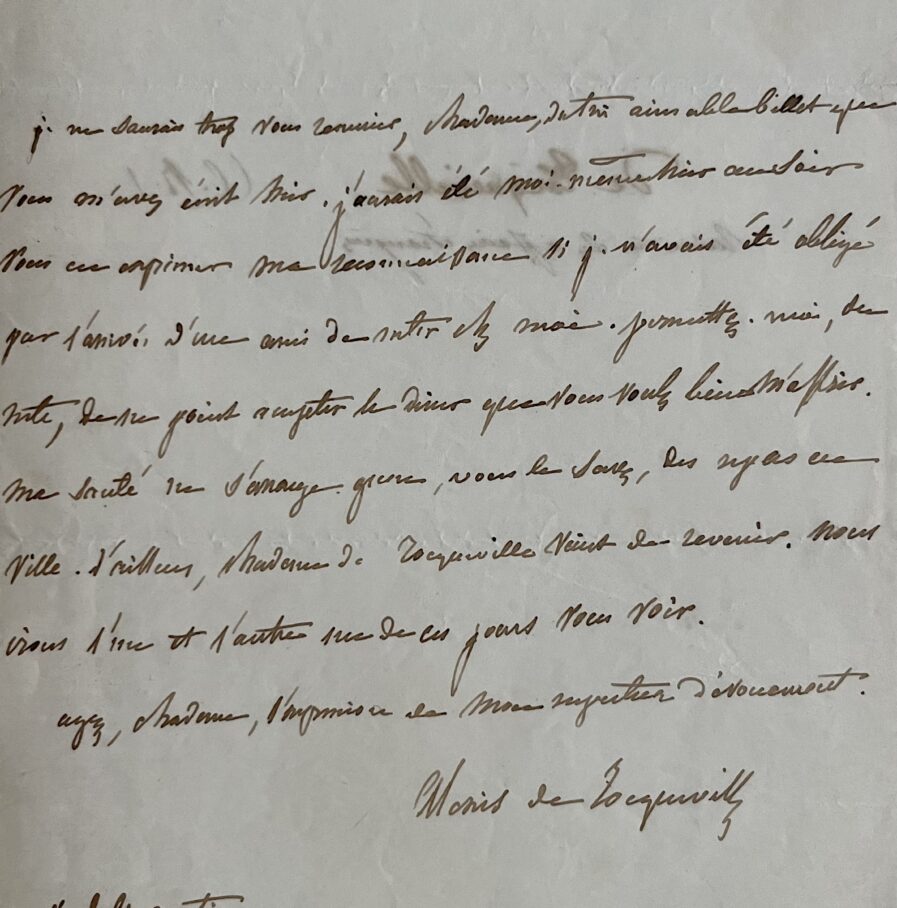 je ne saurais trop vous remercier, Madame, du très aimable billet que
vous m'avez écrit hier. j'aurais été moi-même hier au soir
vous en exprimer ma reconnaissance si je n'avais été obligé
par l'arrivée d'un ami de rester chez moi. permettez-moi, du
reste, de ne point accepter le dîner que vous voulez bien m'offrir.
ma santé ne s'arrange guère, vous le savez, des repas en
ville. d'ailleurs, Madame de Tocqueville vient de revenir. nous
irons l'un et l'autre un de ces jours vous voir.
agréez, Madame, l'expression de mon respectueux dévouement.
Alexis de Tocqueville